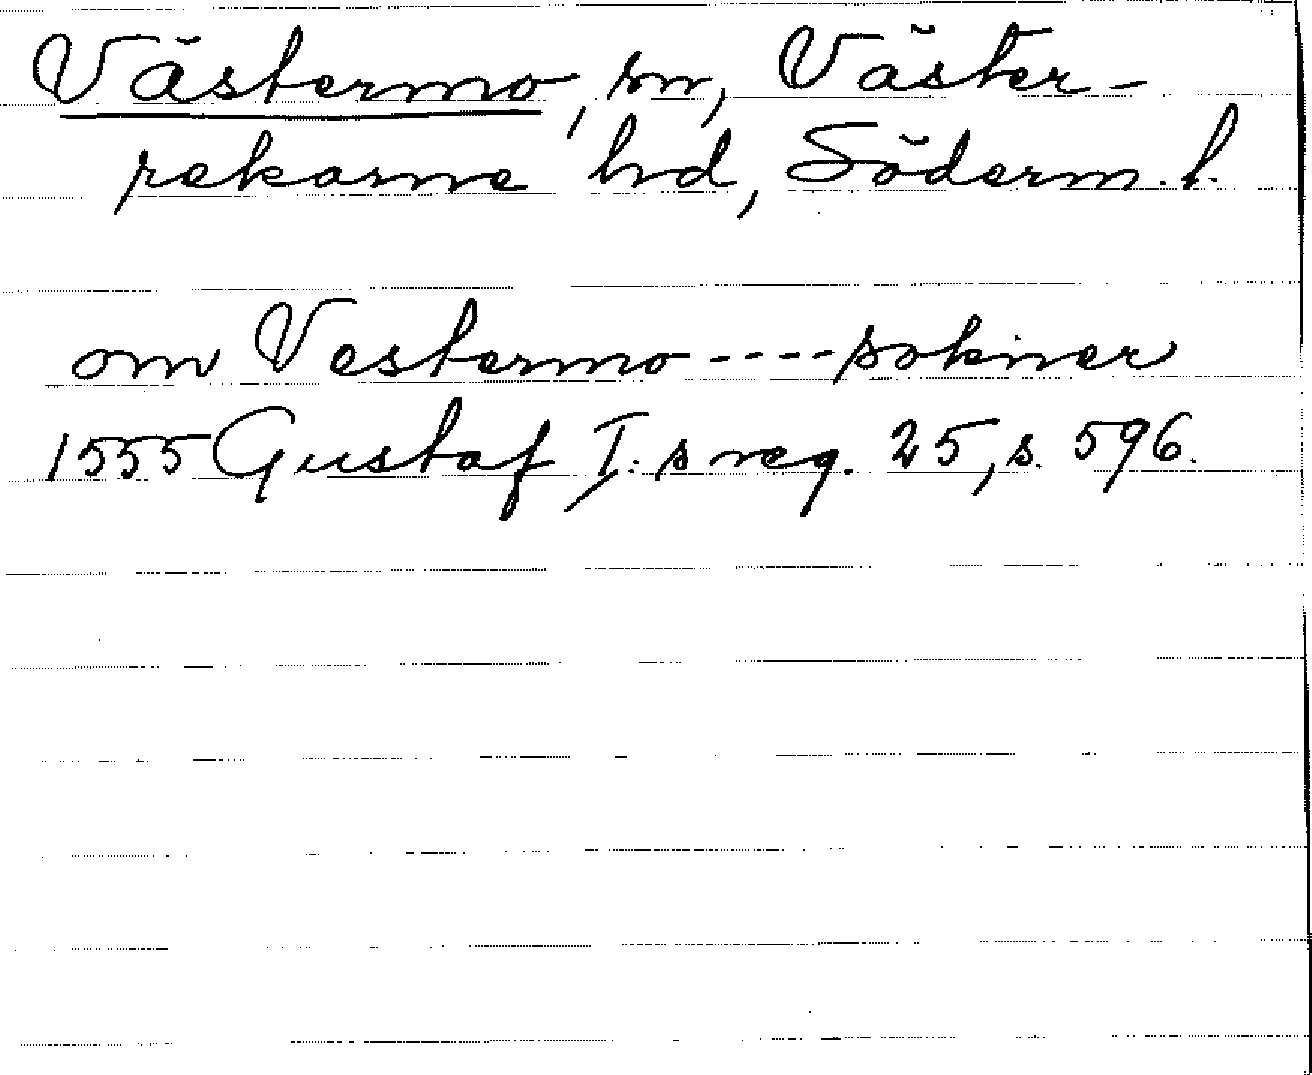 Västermo, sn, Väster-
rekarne hd, Söderm. l.
om Vestermo ---- sokner
1555 Gustaf I:s reg. 25, s. 596.